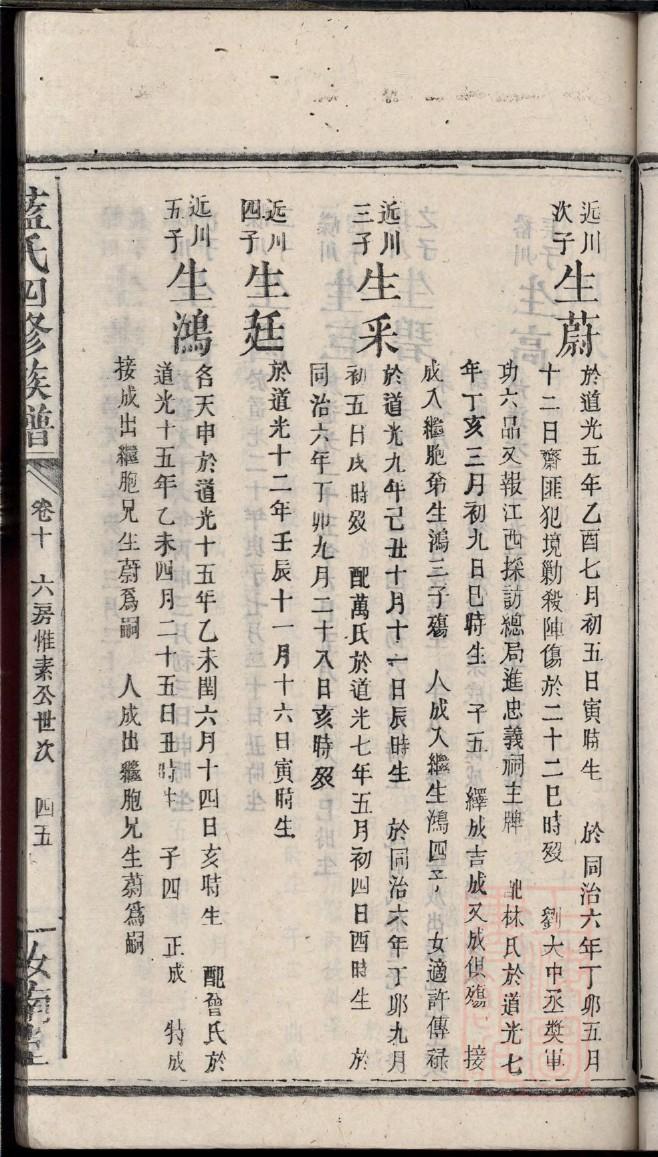 近川
次子
生蔚
於道光五年乙酉七月初五日寅時生　於同治六年丁卯五月
十二日齋匪犯境勦殺陣傷於二十二巳時歿　劉大中丞奬軍
功六品又報江西採訪總局進忠義祠主牌　配林氏於道光七
年丁亥三月初九日巳時生　子五　繹成吉成又成俱殤　接
成入繼胞弟生鴻三子殤　人成入繼生鴻四子　女適許傳祿
近川
三子
生采
於道光九年己丑十月十一日辰時生　於同治六年丁卯九月
初五日戌時歿　配萬氏於道光七年五月初四日酉時生　於
同治六年丁卯九月二十八日亥時歿
近川
四子
生廷
於道光十二年壬辰十一月十六日寅時生
近川
五子
生鴻
名天申於道光十五年乙未閏六月十四日亥時生　配曾氏於
道光十五年乙未四月二十五日丑時生　子四　正成　特成
接成出繼胞兄生蔚爲嗣　人成出繼胞兄生蔚爲嗣
藍氏四修族譜
卷十　六房惟素公世次　四五
汝南堂